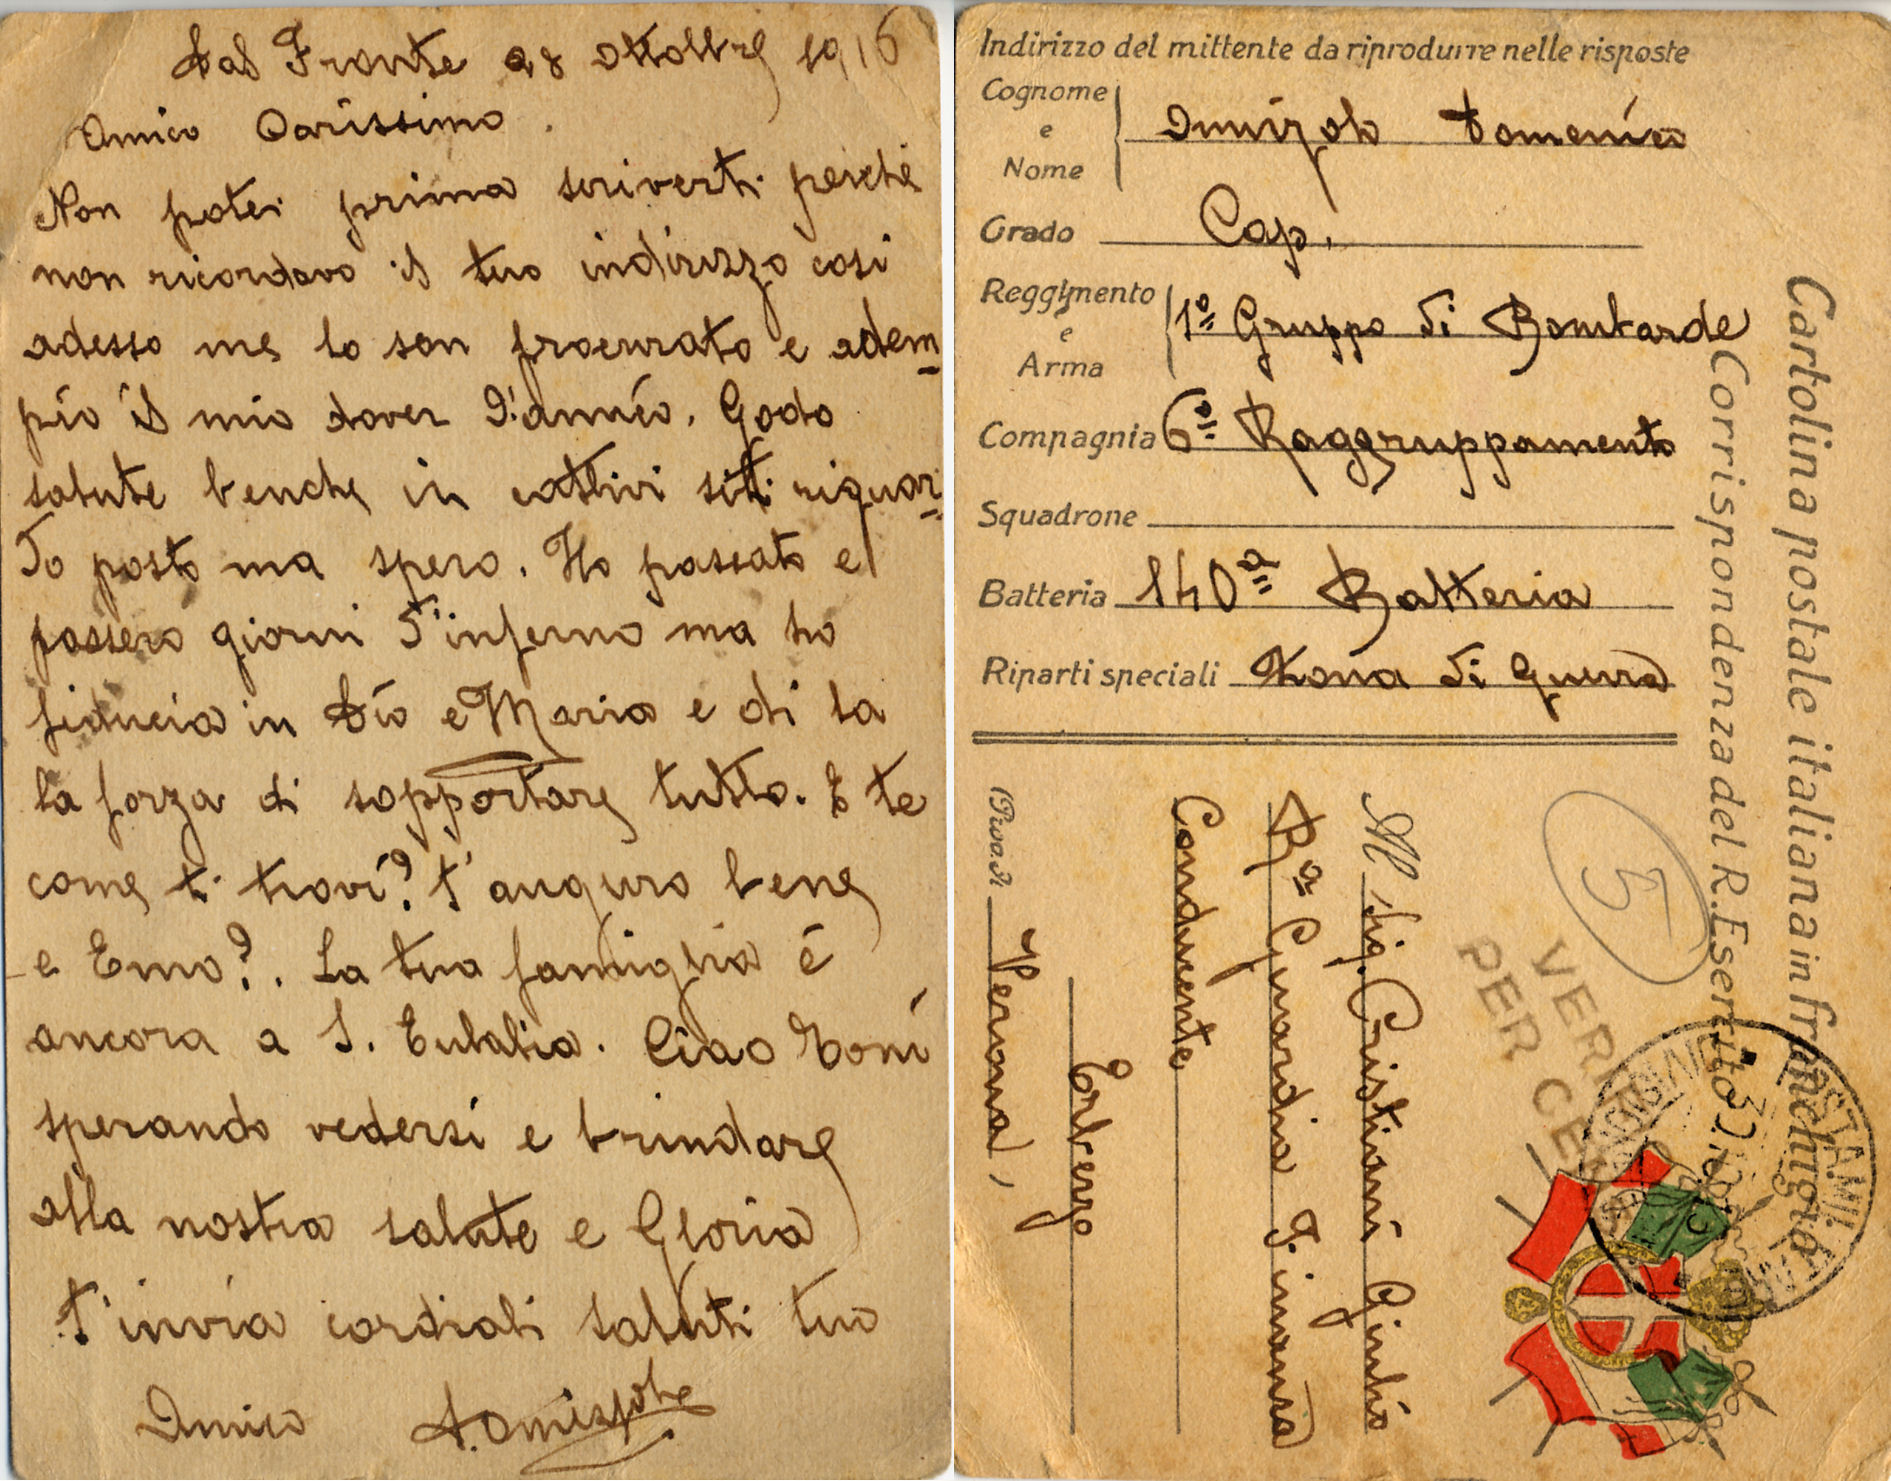 Dal Fronte 28 ottobre 1916
Amico Carissimo.
Non potei prima scriverti perchè
non ricordavo il tuo indirizzo così
adesso me lo son procurato e adem
pio il mio dover d'amico. Godo
salute benche in cattivi siti riguar
do posto ma spero. Ho passato e
passero giorni d'inferno ma ho
fiducia in Dio e Maria e di la
la forza di sopportare tutto. E te
come ti trovi? t'auguro bene
e Emo?. La tua famiglia è
ancora a S. Eulalia. Ciao Toni
sperando vedersi e brindare
alla nostra salute e Gloria
t'invia cordiali saluti tuo
Amico
Indirizzo del mittente da riprodurre nelle risposte
Cognome
e
Nome
Domenico
Grado Cap.
Reggimento
e
Arma
1º Gruppo di Bombarde
Compagnia 6º Raggruppamento
Squadrone
Batteria 140ª Batteria
Riparti speciali Zona di Guerra
Cartolina postale italiana in franchigia
Corrispondenza del R. Esercito
5
VERIF
PER CE
POSTA MI
Al Sig. Cristiani Giulio
Rª Guardia Finanza
Conducente
Erbezzo
(Prov. di Verona)